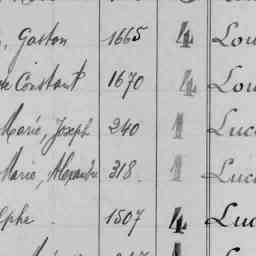 , Gaston 1665 4 Lou
Constant 1670 4 Lou
Marie, Joseph 240 1 Luc
Marie, Alexandre 318. 1 Luc
lphe. 1507 4 Luc